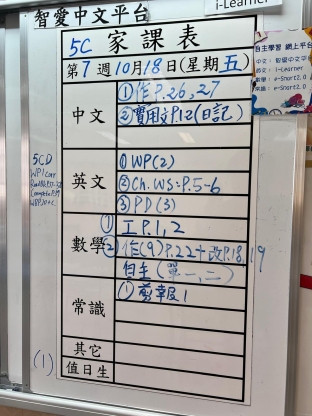 智愛中文平台
i-Learner
5C 家課表
第7週10月18日(星期五)
中文
①作P.26,27
②實用文P.12(日記)
英文
①WP(2)
②Ch.WS:P.5-6
③PD(3)
數學
①工P.1,2
②作(9)P.22+改P.18,19
自主(第一,二)
常識
①剪報1
其它
值日生
(1)
5CD
WP1 Corr
自主學習 網上平台
中文：智愛中文平台
英文：i-Learner
數學：e-Smart2.0
常識：e-Smart2.0